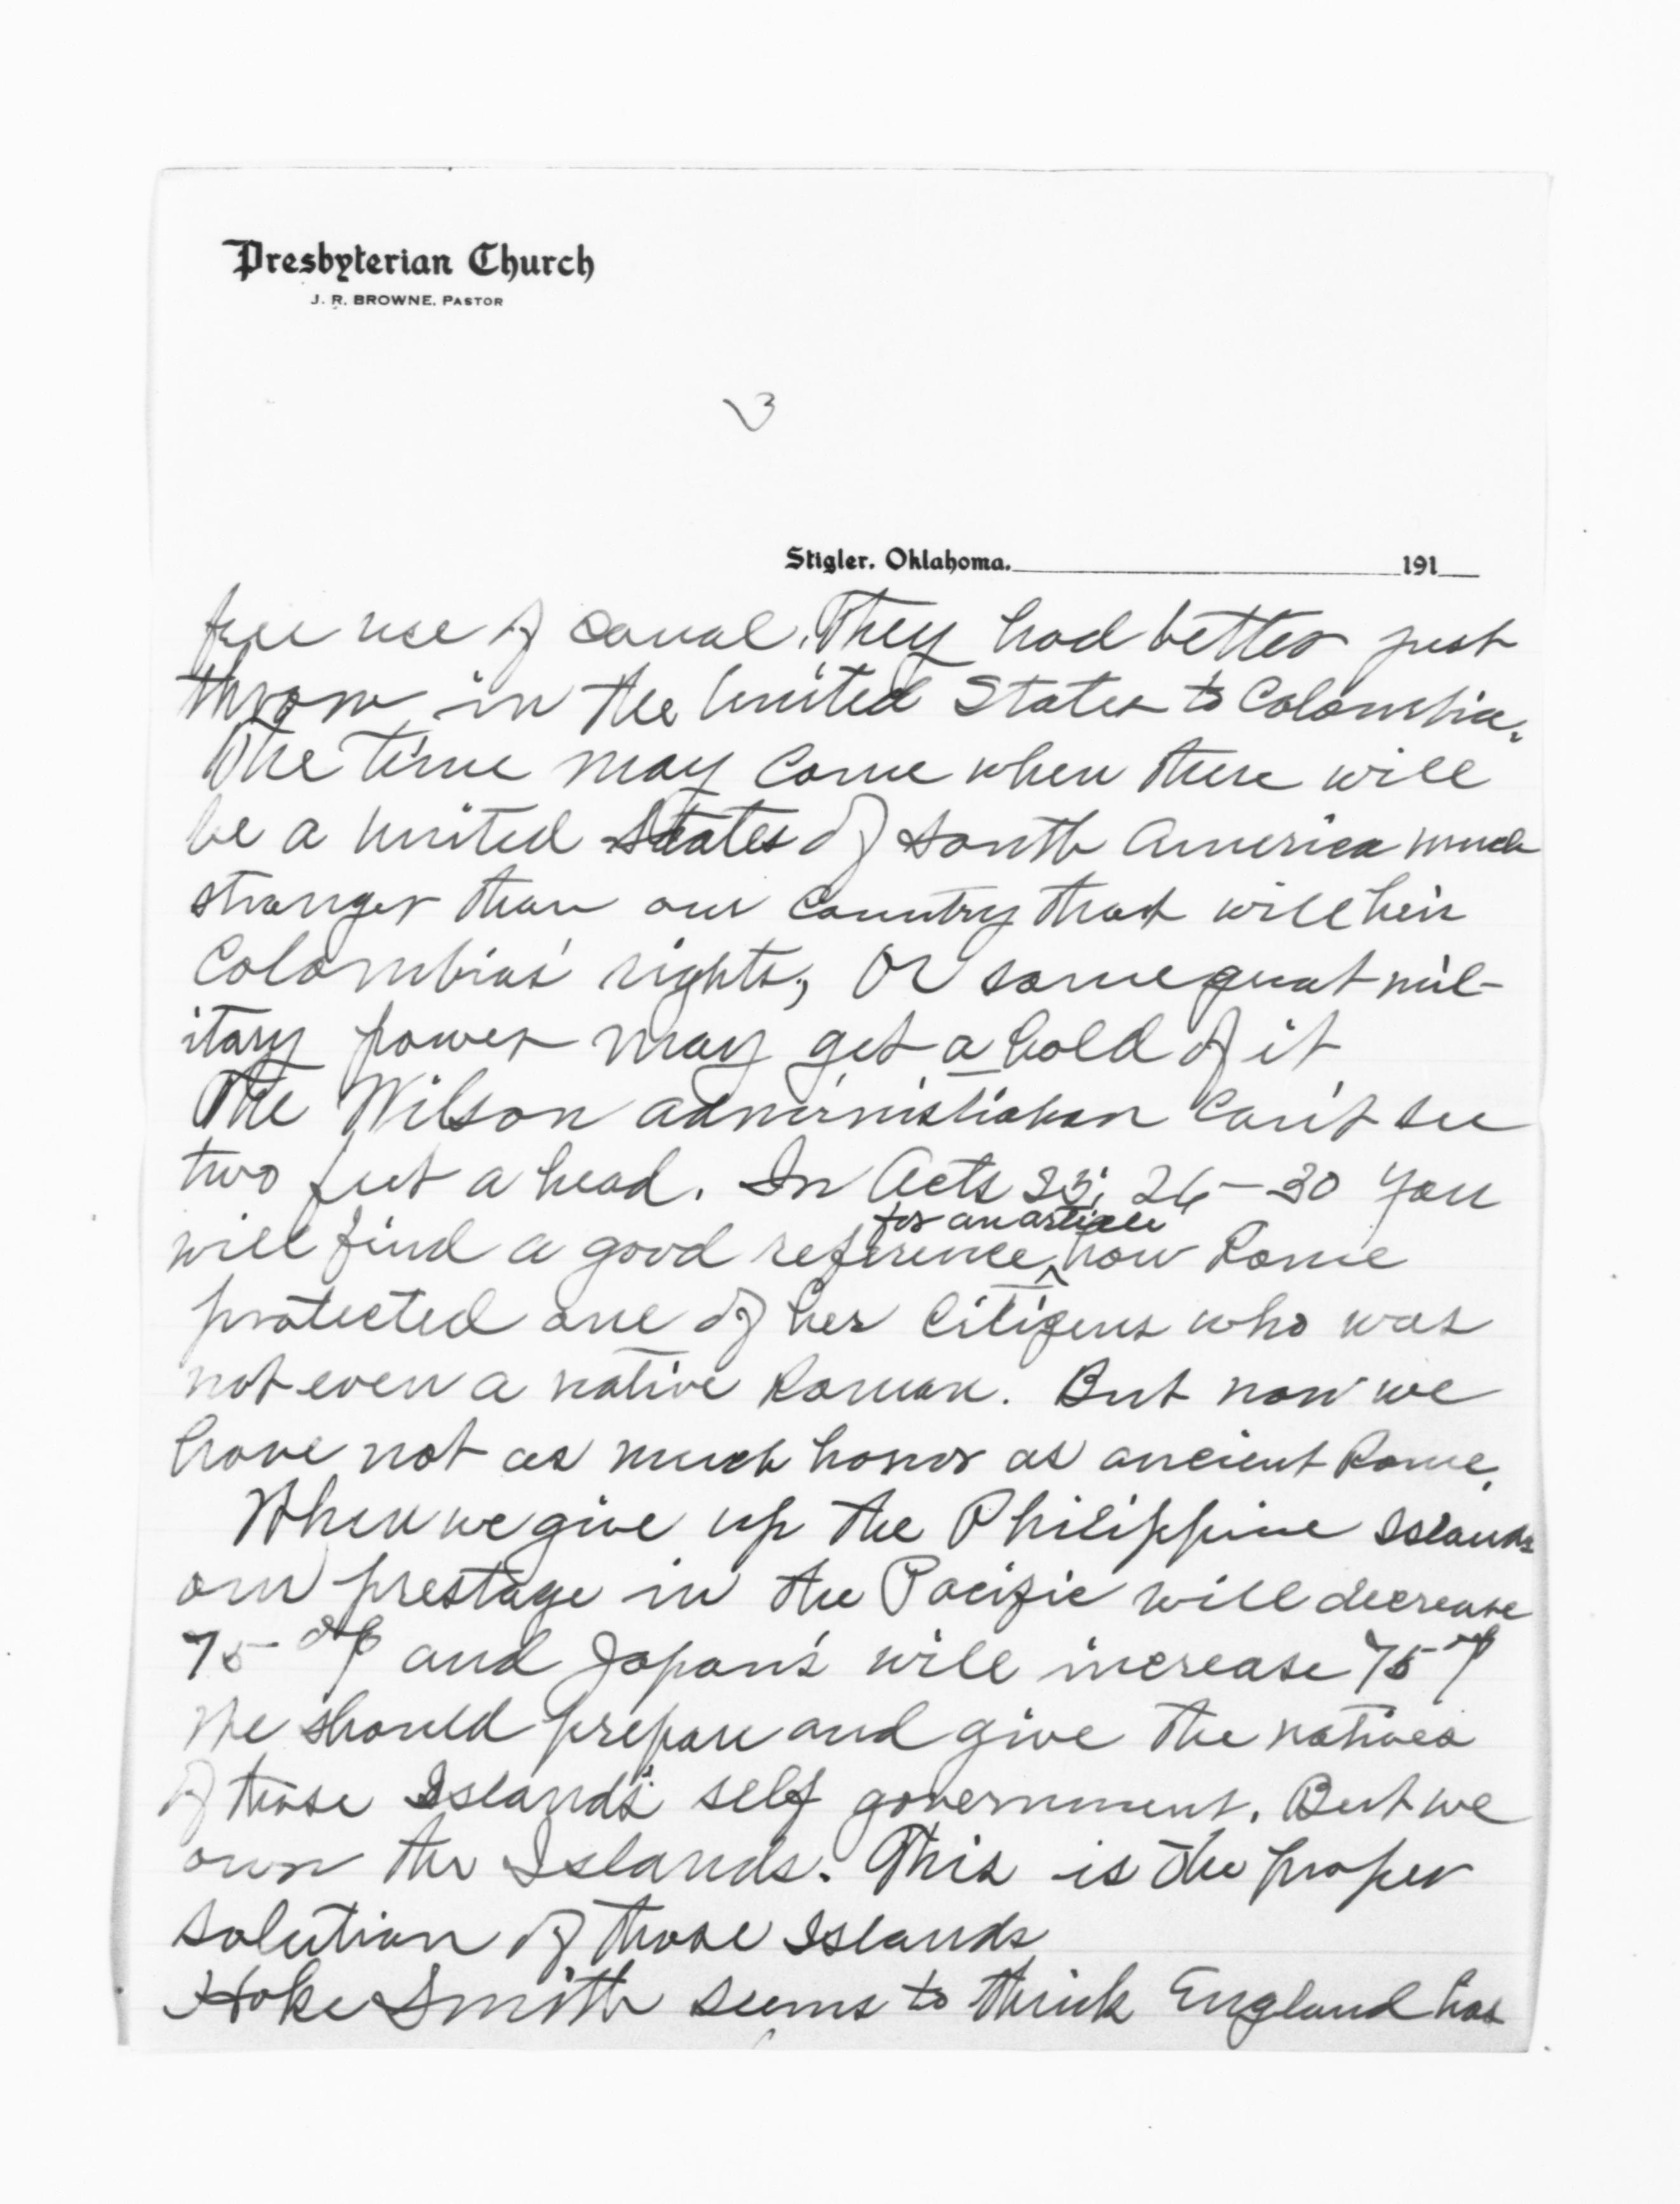 Presbyterian Church
J. R. BROWNE, PASTOR
3
Stigler, Oklahoma. 191
free use of canal. They had better just
throw in the United States to Colombia.
The time may come when there will
be a United States of South America much
stronger than our country that will heir
Colombias' rights, or some great mil-
itary power may get a hold of it
The Wilson administration can't see
two feet a head. In Acts 23; 26-30 you
for an article
will find a good reference, how Rome
protected one of her citizens who was
not even a native Roman. But now we
have not as much honor as ancient Rome.
When we give up the Philippine Islands
our prestage in the Pacific will decrease
75 % and Japan's will increase 75 %
We should prepare and give the natives
of those Islands' self government. But we
own the Islands. This is the proper
solution of those Islands
Hoke Smith seems to think England has